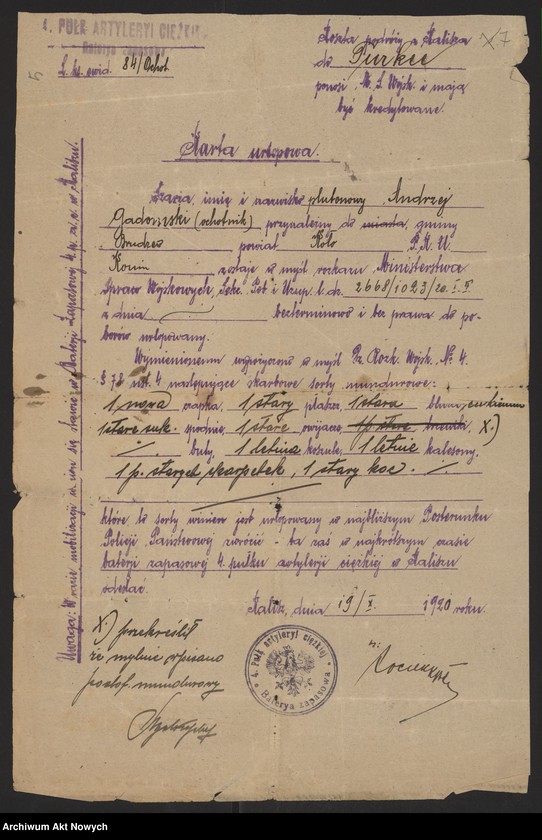 4. PUŁK ARTYLERYI CIĘŻKIEJ
Baterya zapasowa
L. ks. ewid. 84/Ochot
5
Koszta podróży z Kalisza
do Turku
ponosi M. S. Wojsk. i mają
być kredytowane.
X7
Karta urlopowa.
Szarża, imię i nazwisko plutonowy Andrzej
Gadomski (ochotnik) przynależny do miasta, gminy
powiat Koło P.K.U.
Konin zostaje w myśl rozkazu Ministerstwa
Spraw Wojskowych, Sek. Pob i Uzup. L. dz. 2668/1023/20. I. P.
z dnia bezterminowo i bez prawa do po-
borów urlopowany.
Wymienionemu wypożyczono w myśl Dz. Rozk. Wojsk. № 4.
§ 78 ust. 4 następujące skarbowe sorty mundurowe:
1 nowa czapka, 1 stary płaszcz, 1 stara bluza, sukienne
1 stare suk. spodnie, 1 stare owijacze, 1 p. stare X)
buty, 1 letnia koszula, 1 letnie kalesony,
1 p. starych skarpetek, 1 stary koc.
które to sorty winien jest urlopowany w najbliższym Posterunku
Policji Państwowej zwrócić - ta zaś w najkrótszym czasie
baterji zapasowej 4. pułku artylerji ciężkiej w Kaliszu
odesłać.
Kalisz, dnia 19/X. 1920 roku.
Uwaga: W razie mobilizacji winien się stawić w Baterji Zapasowej 4. p. a. c. w Kaliszu.
X) przekreślił
że mylnie wpisano
podof. mundurowy
4. Pułk artyleryi ciężkiej
Baterya zapasowa
Archiwum Akt Nowych